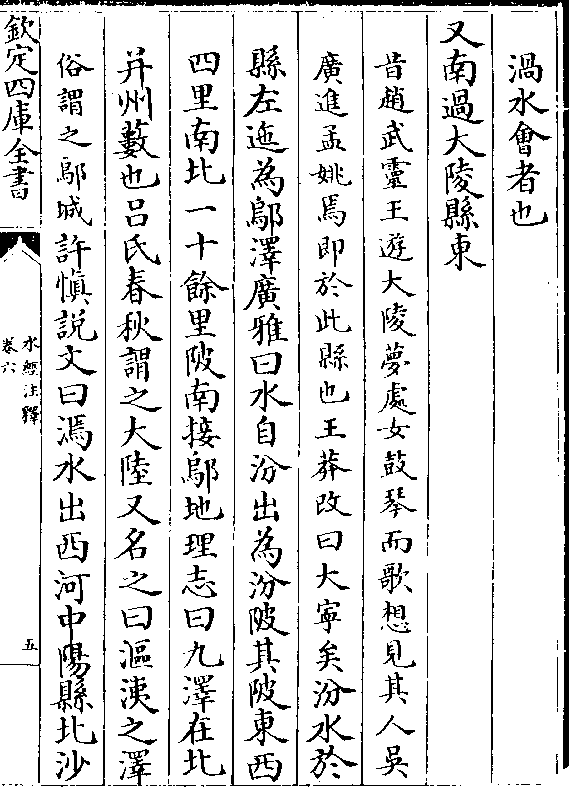 渦水會者也
又南過大陵縣東
昔趙武靈王遊大陵夢處女鼓琴而歌想見其人吳
廣進孟姚焉即於此縣也王莽改曰大寧矣汾水於
縣左迤為鄔澤廣雅曰水自汾出為汾陂其陂東西
四里南北一十餘里陂南接鄔地理志曰九澤在北
并州藪也呂氏春秋謂之大陸又名之曰漚洟之澤
俗謂之鄔城許慎說文曰漹水出西河中陽縣北沙
欽定四庫全書
水經注釋
卷六
五